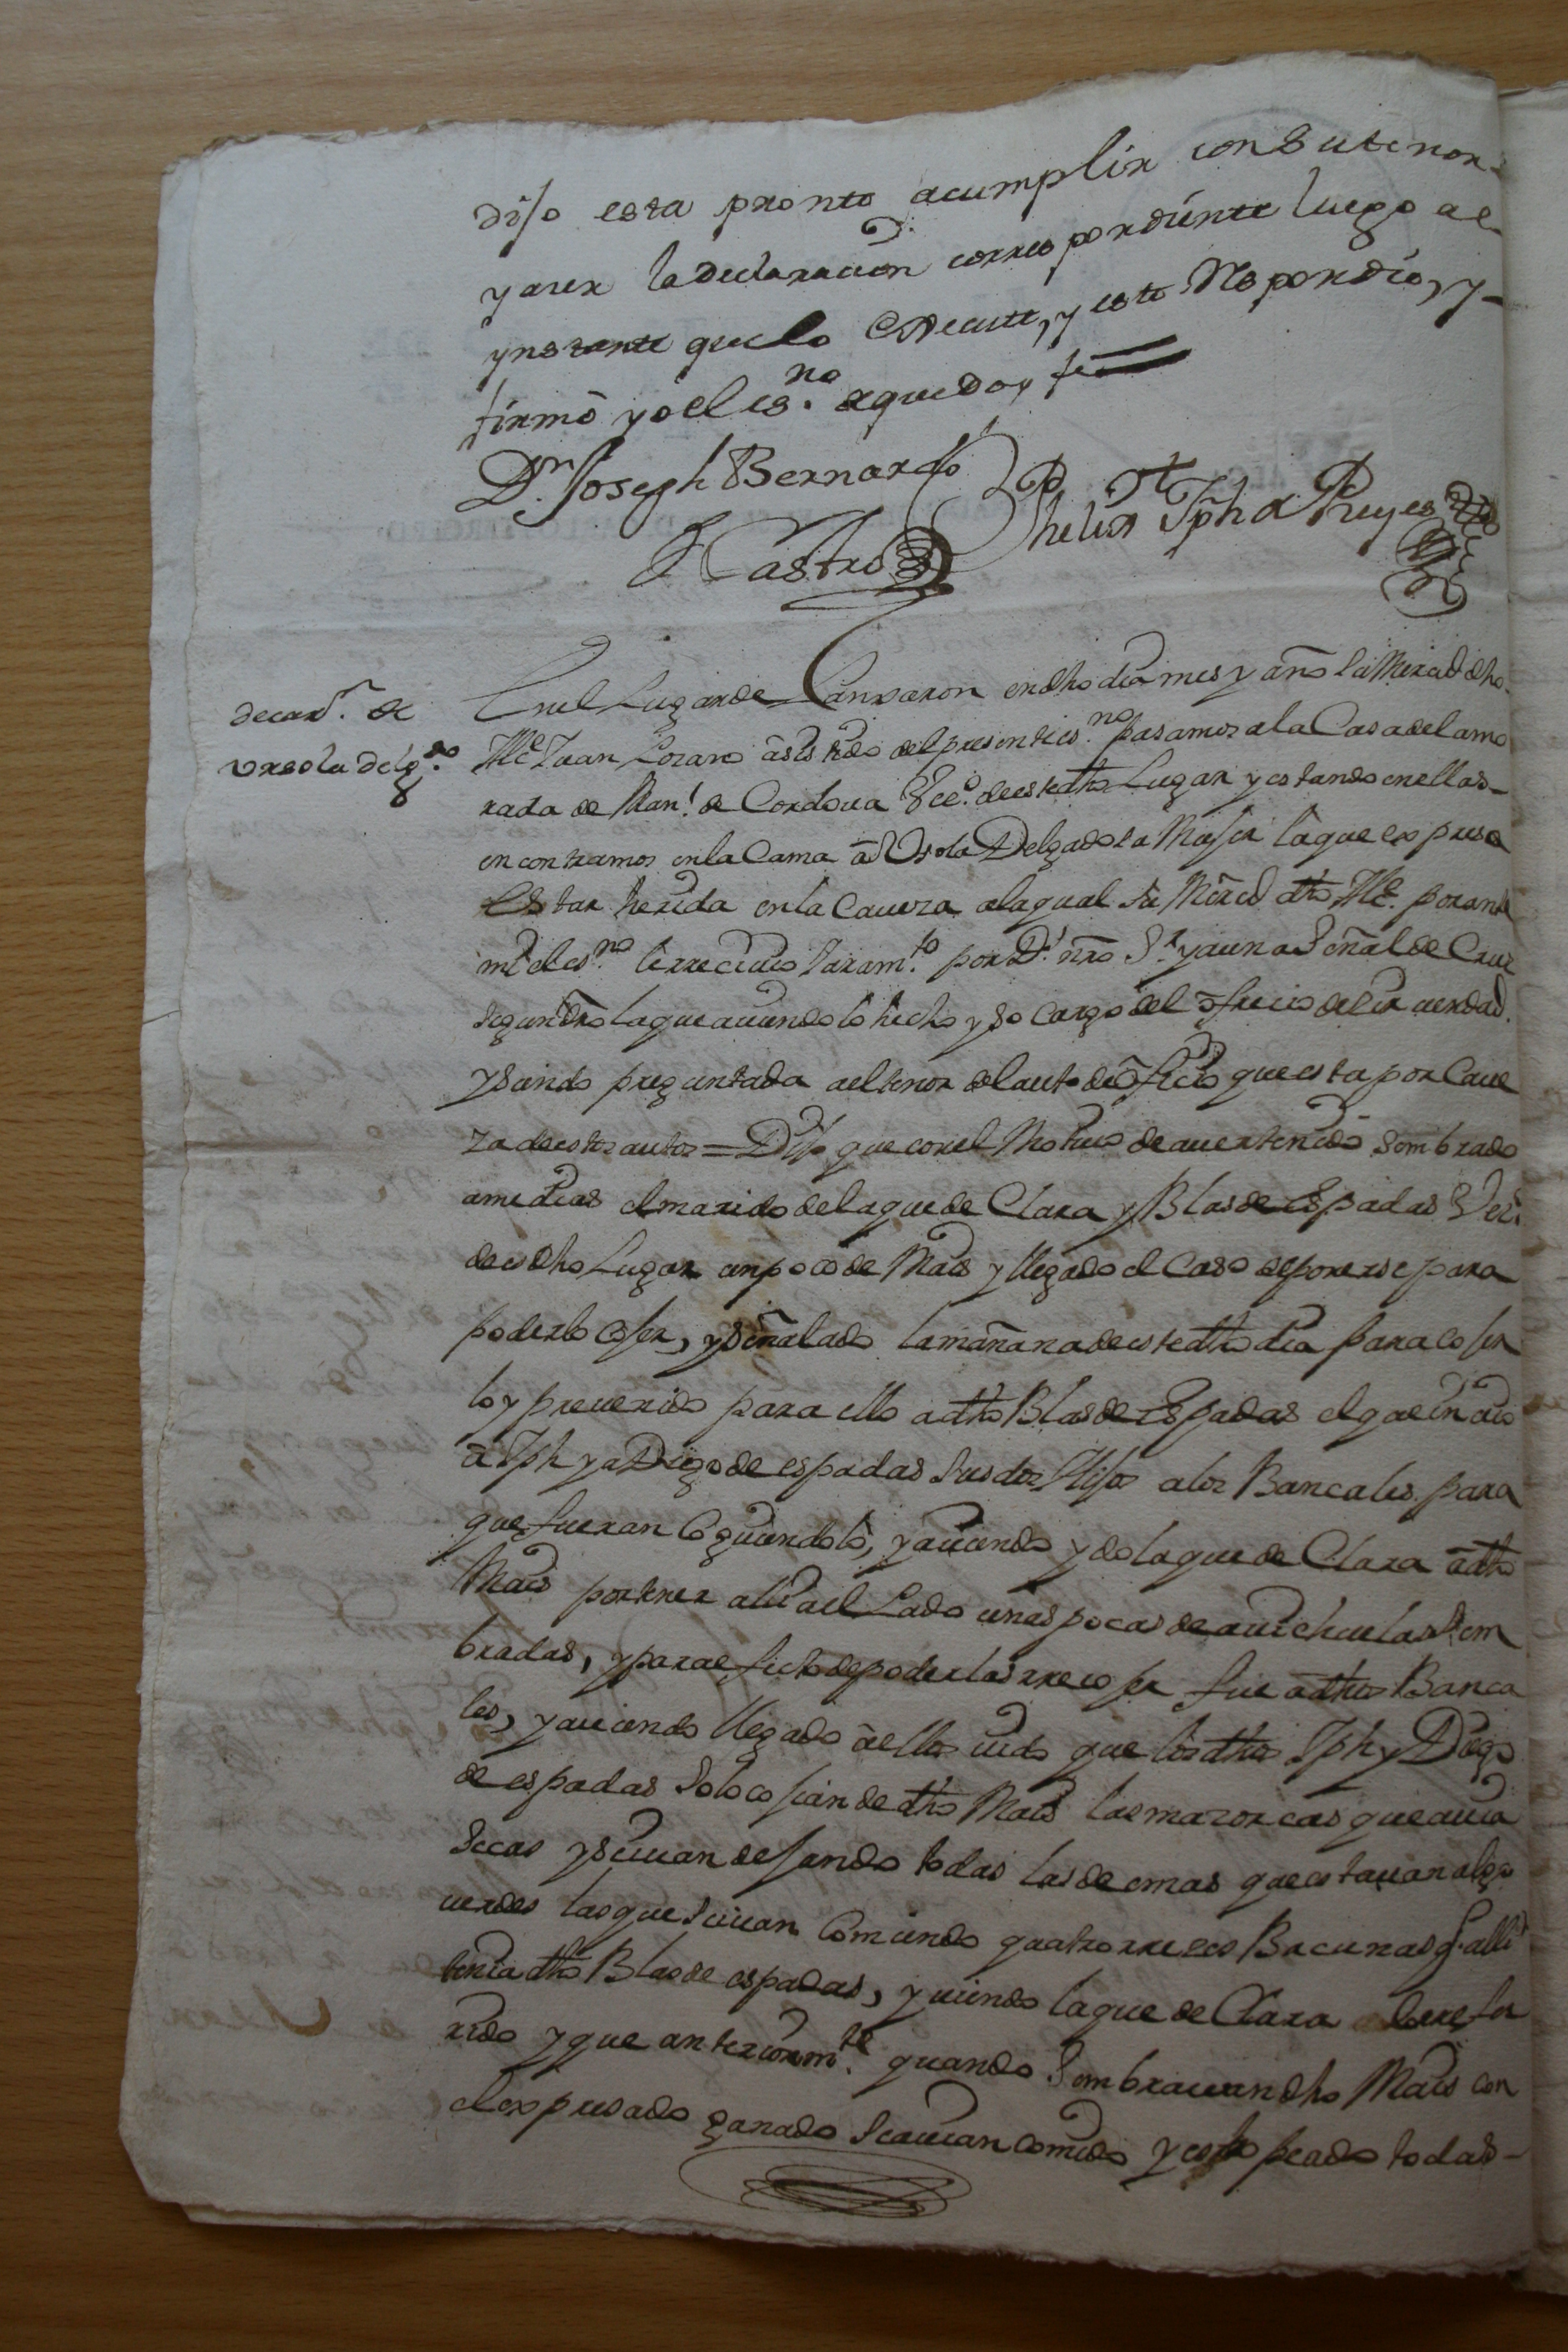 dijo esta pronto acumplir con sutenor
y aser la declaracion correspondiente luego ael
ynstante que lo execute, y esto Respondio, y
firmô yo el es.no de que doy fe
Dn. Joseph Bernardo
Castro
Phelix Jph de Reyes
declarn. de
Ursola Delgdo.
En el Lugar de Lanxaron en dho dia mes y año la Merced dho
Alce Juan Lozano asistido del presente es.no pasamos a la Casa de la mo
rada de Manl. de Cordova Veco. de este dho Lugar y estando en ellas
encontramos en la Cama â Ursola Delgado la Mujer la que expreso
Estar herida en la Caveza a la qual su Merced dho Alce. por ante
mi el es.no le rrecivio Juram.to por Ds. nro Sr. y a una Señal de Cruz
segun dro la que aviendolo hecho y so Cargo del ofrecio decir verdad
y siendo preguntada ael tenor del auto de ôficio que esta por Cave
za de estos autos = Dijo que con el Motivo de aver tenido Sembrado
amedias el marido de la que de Clara y Blas de Espadas Vez.
de es dho Lugar un poco de Mais y llegado el Caso de ponerse para
poderlo cojer, y señalado la mañana de este dho dia para cojer
lo y prevenido para ello a dho Blas de Espadas el que inbio
â Jph y a Diego de espadas sus dos Hijos a los Bancales para
que fueran Coguiendolo, y aviendo ydo la que de Clara â dho
Mais por tener alli ael Lado unas pocas de avichuelas Sem
bradas, y para efecto de poderlas rrecojer fue â dhos Banca
les, y aviendo llegado â ellos vido que los dhos Jph y Diego
de espadas solo cojian de dho Mais las mazorcas que avia
secas y se ivan dejando todas las demas que estavan algo
verdes las que se ivan Comiendo quatro rreses Bacunas q. alli
tenia dho Blas de espadas, y viendo la que de Clara lo refe
rido y que anteriorm.te quando Sembravan dho Mais con
el expresado ganado se avian comido y estropeado todas